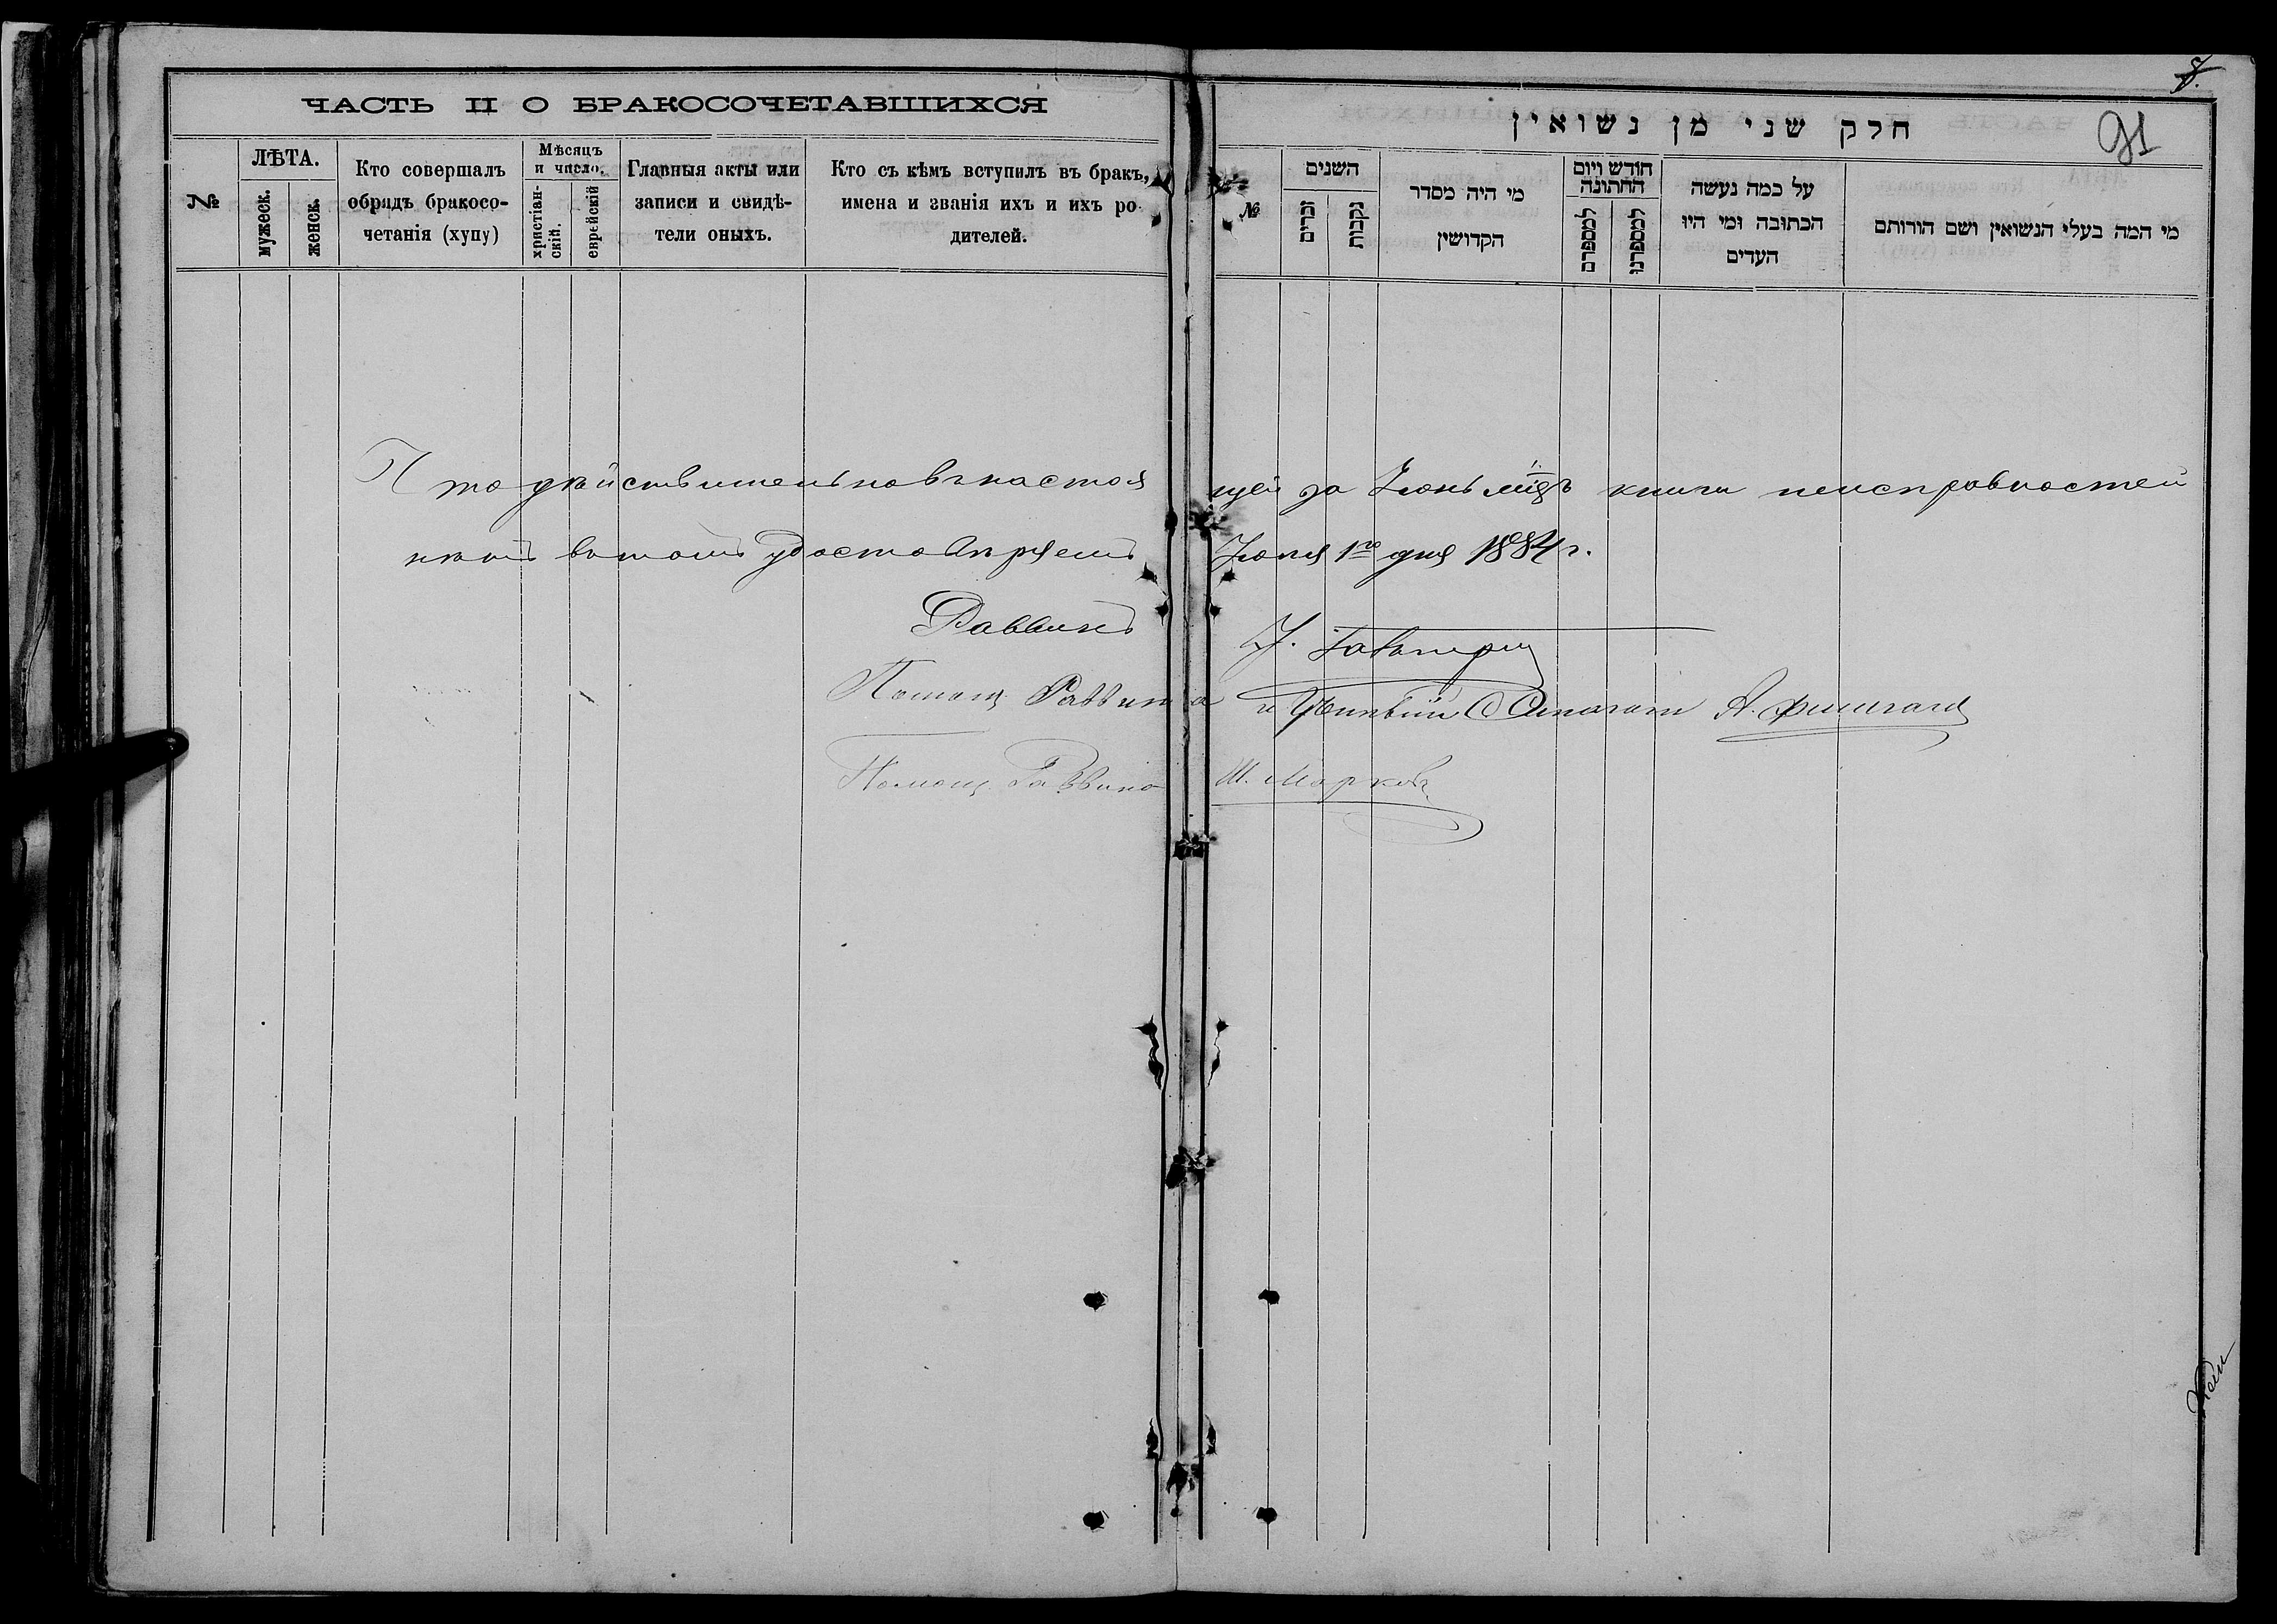 ЧАСТЬ II О БРАКОСОЧЕТАВШИХСЯ
№
ЛѢТА.
мужеск.
женск.
Кто совершалъ
обрядъ бракосо-
четанія (хупу)
Мѣсяцъ
и число.
христіан-
скій.
еврейскій
Главныя акты или
записи и свидѣ-
тели оныхъ.
Кто съ кѣмъ вступилъ въ бракъ,
имена и званія ихъ и ихъ ро-
дителей.
חלק שני מן נשואין
91
№
השנים
זכרים
נקבות
מי היה מסדר
הקדושין
חודש ויום
החתונה
למספרם
למספרנו
על כמה נעשה
הכתובה ומי היו
העדים
מי המה בעלי הנשואין ושם הורותם
Что дѣйствительно въ настоя щей за Іюнь мцъ книги неисправностей
нѣтъ въ томъ удостовѣряемъ Іюля 1го дня 1884 г.
Раввинъ
Помощ Раввина и А.
Помощ Раввина Ш. Марковъ